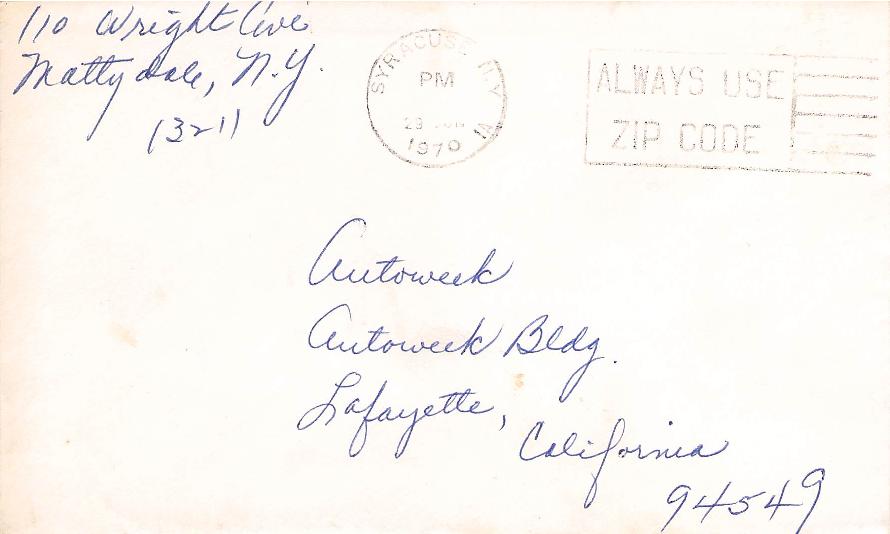 110 Wright Ave
Mattydale, N.Y.
13211
SYRACUSE N.Y
PM
1970
1A
ALWAYS USE
ZIP CODE
Autoweek
Autoweek Bldg.
Lafayette,
California
94549